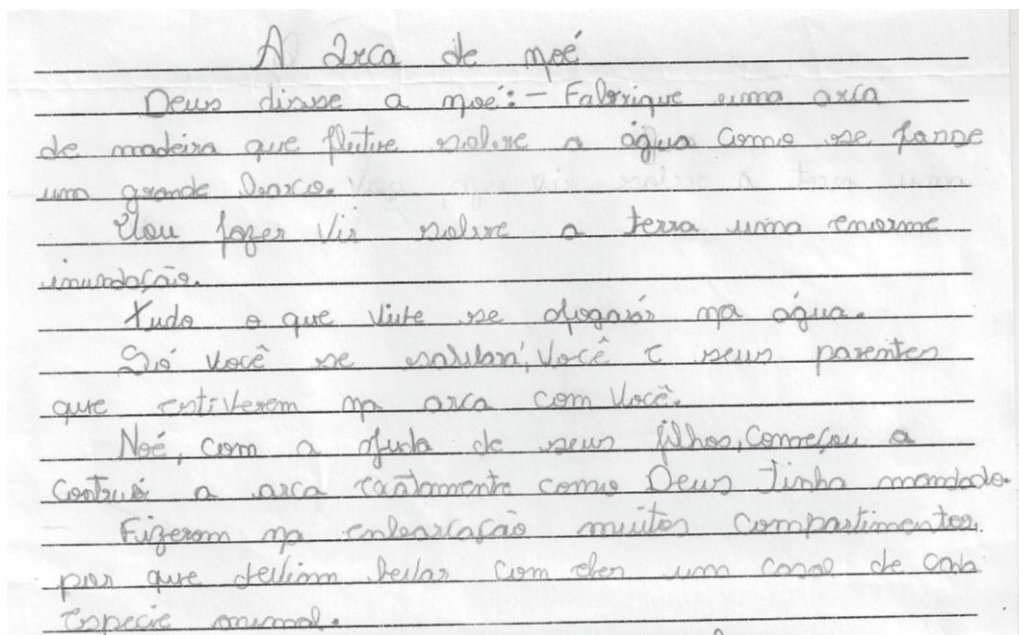 A Arca de noé
Deus disse a noé: - Fabrique uma arca
de madeira que flutue sobre a água como se fosse
uma grande barco.
Vou fazer Vir sobre a terra uma enorme
inundação.
Tudo o que vive se afogará na água.
Só você se salvará, Você e seus parentes
que estiverem na arca com Você.
Noé, com a ajuda de seus filhos, Começou a
contruir a arca exatamente como Deus Tinha mandado.
Fizeram na enbarcação muitos compartimentos
por que deviam levar com eles um casal de cada
espécie animal.